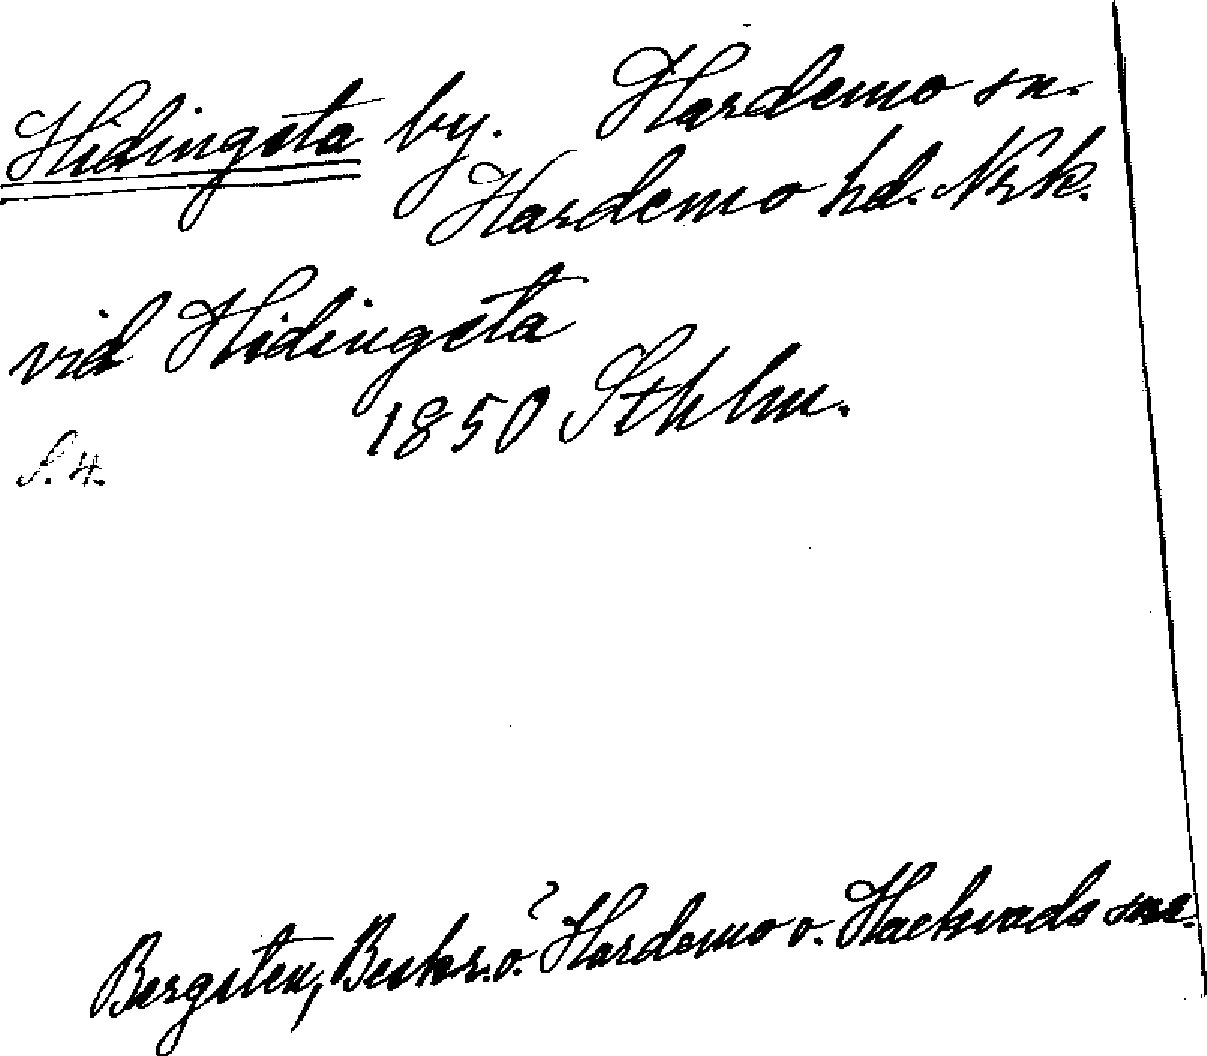 Hidingsta by. Hardemo sn.
Hardemo hd. Nrk.
vid Hidingsta
1850 Sthlm.
S. 4.
Bergsten, Beskr. ö. Hardemo o. Hackvads sna.